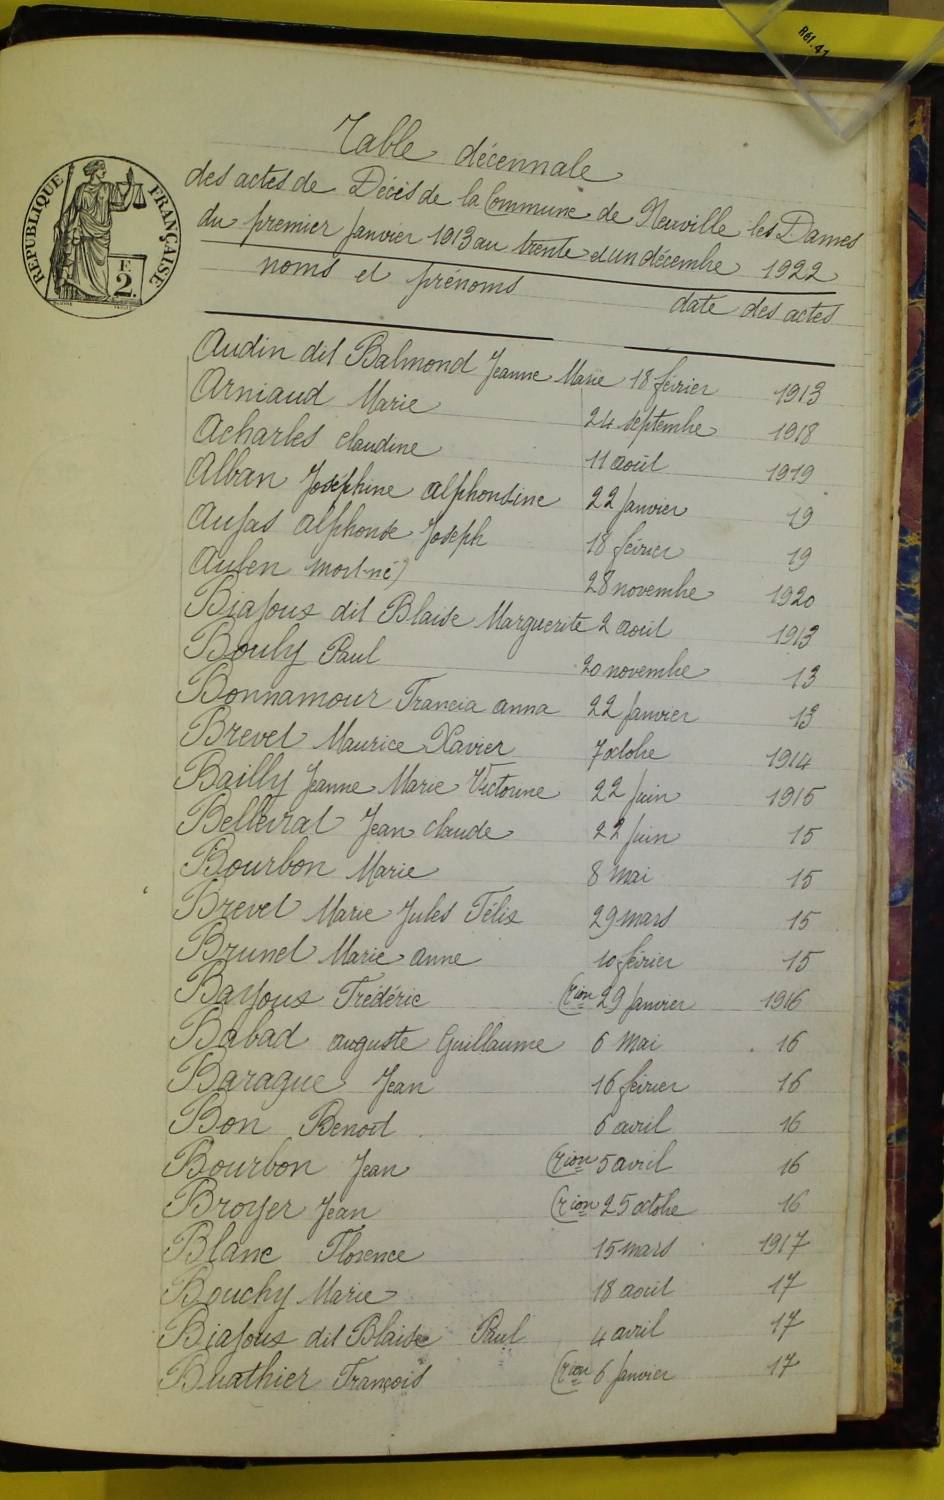 R61.41
RÉPUBLIQUE FRANÇAISE
F
2.
Table décennale
des actes de Décès de la Commune de Neuville les Dames
du premier Janvier 1913 au trente et un décembre 1922
noms et prénoms date des actes
Audin dit Balmond Jeanne Marie 18 février 1913
Arniaud Marie 24 septembre 1918
Acharles Claudine 11 août 1919
Alban Joséphine alphonsine 22 Janvier 19
Aujas alphonse Joseph 18 février 19
mort-né 28 novembre 1920
Biajoux dit Blaise Marguerite 2 août 1913
Bouly Paul 20 novembre 13
Bonnamour Francia anna 22 Janvier 13
Brevet Maurice Xavier 7 octobre 1914
Bailly Jeanne Marie Victorine 22 Juin 1915
Jean Claude 22 Juin 15
Bourbon Marie 8 Mai 15
Brevet Marie Jules Félix 29 mars 15
Brunet Marie anne 10 février 15
Bajoux Frédéric (cion 29 Janvier 1916
Babad auguste Guillaume 6 Mai 16
Barague Jean 16 février 16
Bon Benoit 6 avril 16
Bourbon Jean (cion 5 avril 16
Broyer Jean (cion 25 octobre 16
Blanc Florence 15 mars 1917
Bouchy Marie 18 août 17
Biajoux dit Blaise Paul 4 avril 17
Buathier François (cion 6 Janvier 17